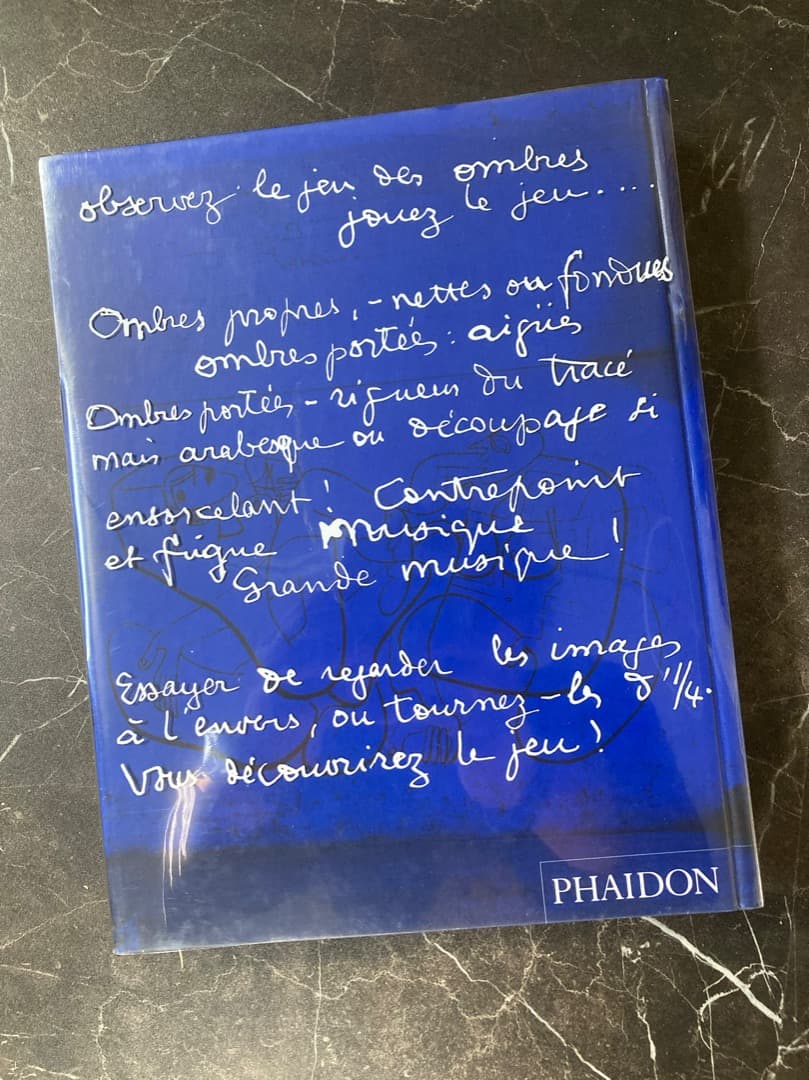 observez le jeu des ombres
jouez le jeu....
Ombres propres, - nettes ou fondues
ombres portées : aigües
Ombres portées - rigueur du tracé
mais arabesque ou découpage si
ensorcelant ! Contrepoint
et fügue Musique
Grande musique !
Essayer de regarder les images
à l'envers, ou tournez-les d'1/4.
Vous découvrirez le jeu !
PHAIDON